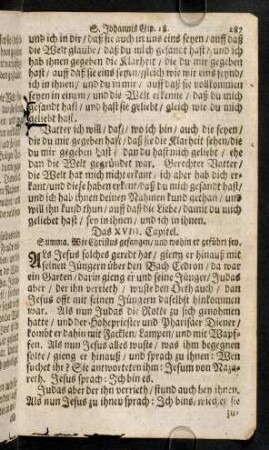 S. Johannis Cap. 18. 287
und ich in dir / daß sie auch in uns eins seyen / auff daß
die Welt glaube / daß du mich gesandt hast / und ich
hab ihnen gegeben die Klarheit / die du mir gegeben
hast / auff daß sie eins seyen / gleich wie wir eins seynd /
ich in ihnen / und du in mir / auff daß sie vollkommen
seyen in einem / und die Welt erkenne / daß du mich
gesandt hast / und hast sie geliebet / gleich wie du mich
geliebt hast.
Vatter ich will / daß / wo ich bin / auch die seyen /
die du mir gegeben hast / daß sie die Klarheit sehen / die
du mir gegeben hast / dan du hast mich geliebt / ehe
dan die Welt gegründet war. Gerechter Vatter /
die Welt hat mich nicht erkant / ich aber hab dich er-
kant / und diese haben erkent / daß du mich gesandt hast /
und ich hab ihnen deinen Nahmen kund gethan / und
will ihn kund thun / auff daß die Liebe / damit du mich
geliebet hast / sey in ihnen / und ich in ihnen.
Das XVIII. Capitel.
Summa. Wie Christus gefangen / und wohin er geführt sey.
Als Jesus solches geredt hat / gieng er hinauß mit
seinen Jüngern über den Bach Cedron / da war
ein Garten / darin gieng er und seine Jünger / Judas
aber / der ihn verrieth / wuste den Orth auch / dan
Jesus offt mit seinen Jüngern daselbst hinkommen
war. Als nun Judas die Rotte zu sich genommen
hatte / und der Hohepriester und Pharisäer Diener /
kombt er dahin mit Facklen / Lampen / und mit Wapf-
fen. Als nun Jesus alles wuste / was ihm begegnen
solte / gieng er hinauß / und sprach zu ihnen: Wen
suchet ihr? Sie antworteten ihm: Jesum von Naza-
reth. Jesus sprach: Ich bin es.
Judas aber der ihn verrieth / stund auch bey ihnen.
Als nun Jesus zu ihnen sprach: Ich bins, wiech er sie
zu-